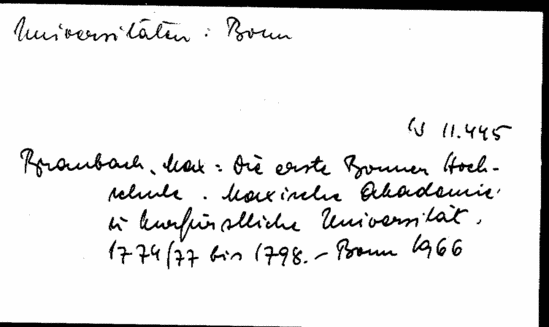 Universitäten: Bonn
W 11.445
Braubach, Max: Die erste Bonner Hoch-
schule. Maxische Akademie
u kurfürstliche Universität.
1774/77 bis 1798. - Bonn 1966